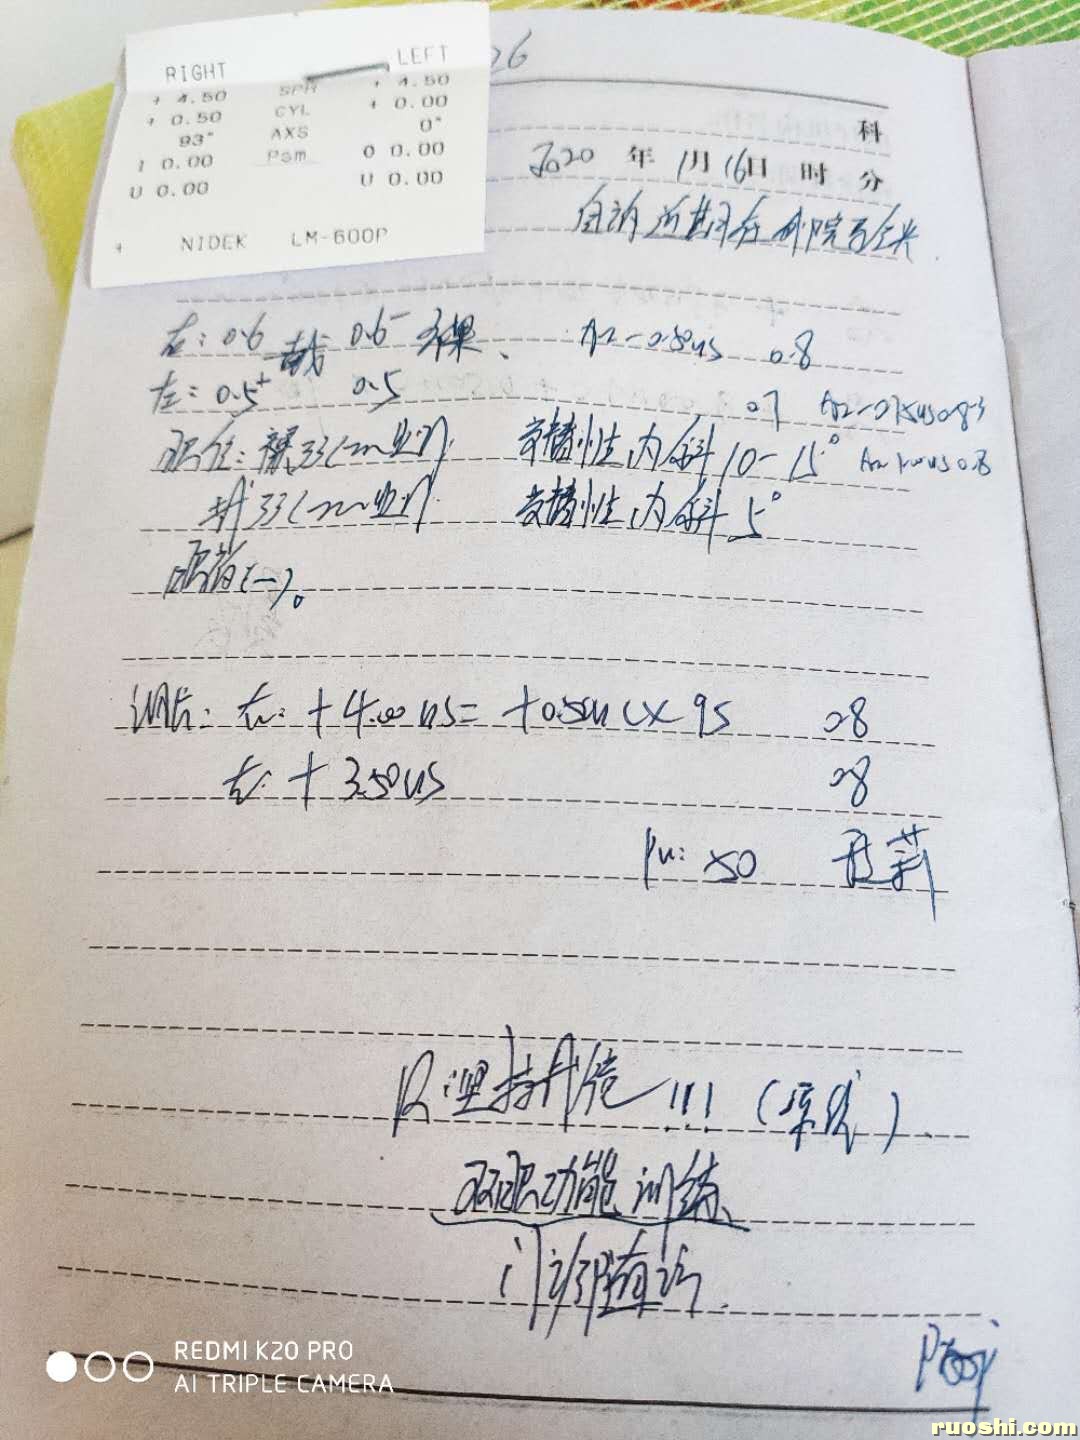 26
RIGHT LEFT
+ 4.50 SPH + 4.50
+ 0.50 CYL + 0.00
93° AXS 0°
I 0.00 Psm O 0.00
U 0.00 U 0.00
+ NIDEK LM-600P
科
2020 年 1月 16日 时 分
自诉近期在
右: 0.6 戴 0.6⁻ 0.8
左: 0.5⁺ 0.5 0.7
眼位: 裸 33cm 交替性内斜 10-15°
戴 33cm 交替性内斜 5°
眼前(-)。
试片: 右: +4.00DS= +0.50DC× 95 0.8
左: +3.50DS 0.8
PD: 50
R: 坚持戴镜!!!
双眼功能训练、
门诊随访.
REDMI K20 PRO
AI TRIPLE CAMERA
ruoshi.com